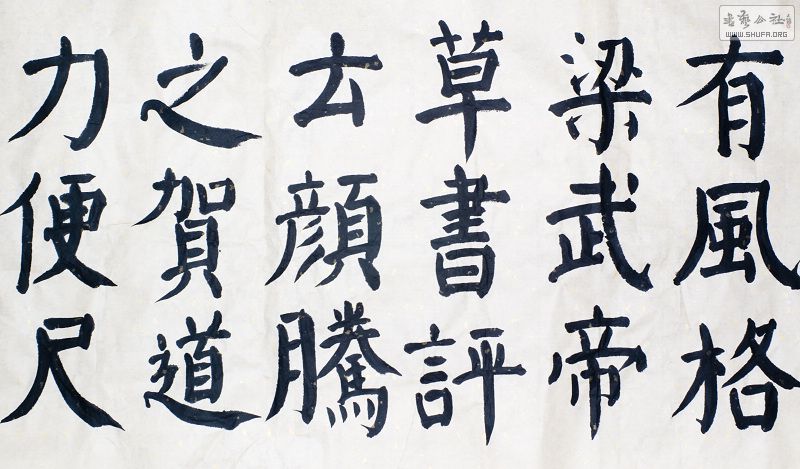 有風格
梁武帝
草書評
云顔騰
之賀道
力便尺
書藝公社
WWW.SHUFA.ORG